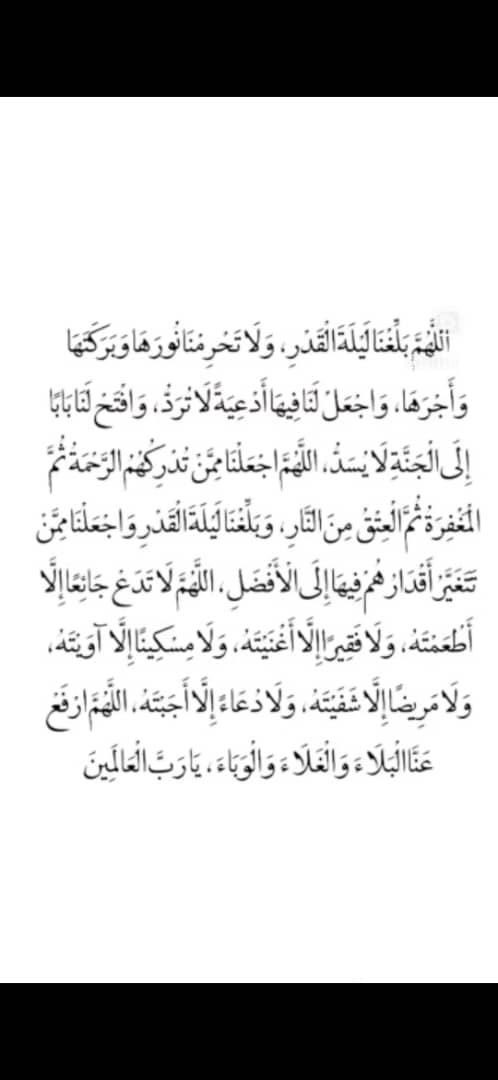 اَللَّهُمَّ بَلِّغْنَا لَيْلَةَ الْقَدْرِ، وَلَا تَحْرِمْنَا نُورَهَا وَبَرَكَتَهَا
وَأَجْرَهَا، وَاجْعَلْ لَنَا فِيهَا أَدْعِيَةً لَا تُرَدُّ، وَافْتَحْ لَنَا بَابًا
إِلَى الْجَنَّةِ لَا يُسَدُّ، اللَّهُمَّ اجْعَلْنَا مِمَّنْ تُدْرِكُهُمْ الرَّحْمَةُ ثُمَّ
الْمَغْفِرَةُ ثُمَّ الْعِتْقُ مِنَ النَّارِ، وَبَلِّغْنَا لَيْلَةَ الْقَدْرِ وَاجْعَلْنَا مِمَّنْ
تَتَغَيَّرُ أَقْدَارُهُمْ فِيهَا إِلَى الْأَفْضَلِ، اللَّهُمَّ لَا تَدَعْ جَائِعًا إِلَّا
أَطْعَمْتَهُ، وَلَا فَقِيرًا إِلَّا أَغْنَيْتَهُ، وَلَا مِسْكِينًا إِلَّا آوَيْتَهُ،
وَلَا مَرِيضًا إِلَّا شَفَيْتَهُ، وَلَا دُعَاءً إِلَّا أَجَبْتَهُ، اللَّهُمَّ ارْفَعْ
عَنَّا الْبَلَاءَ وَالْغَلَاءَ وَالْوَبَاءَ، يَا رَبَّ الْعَالَمِينَ